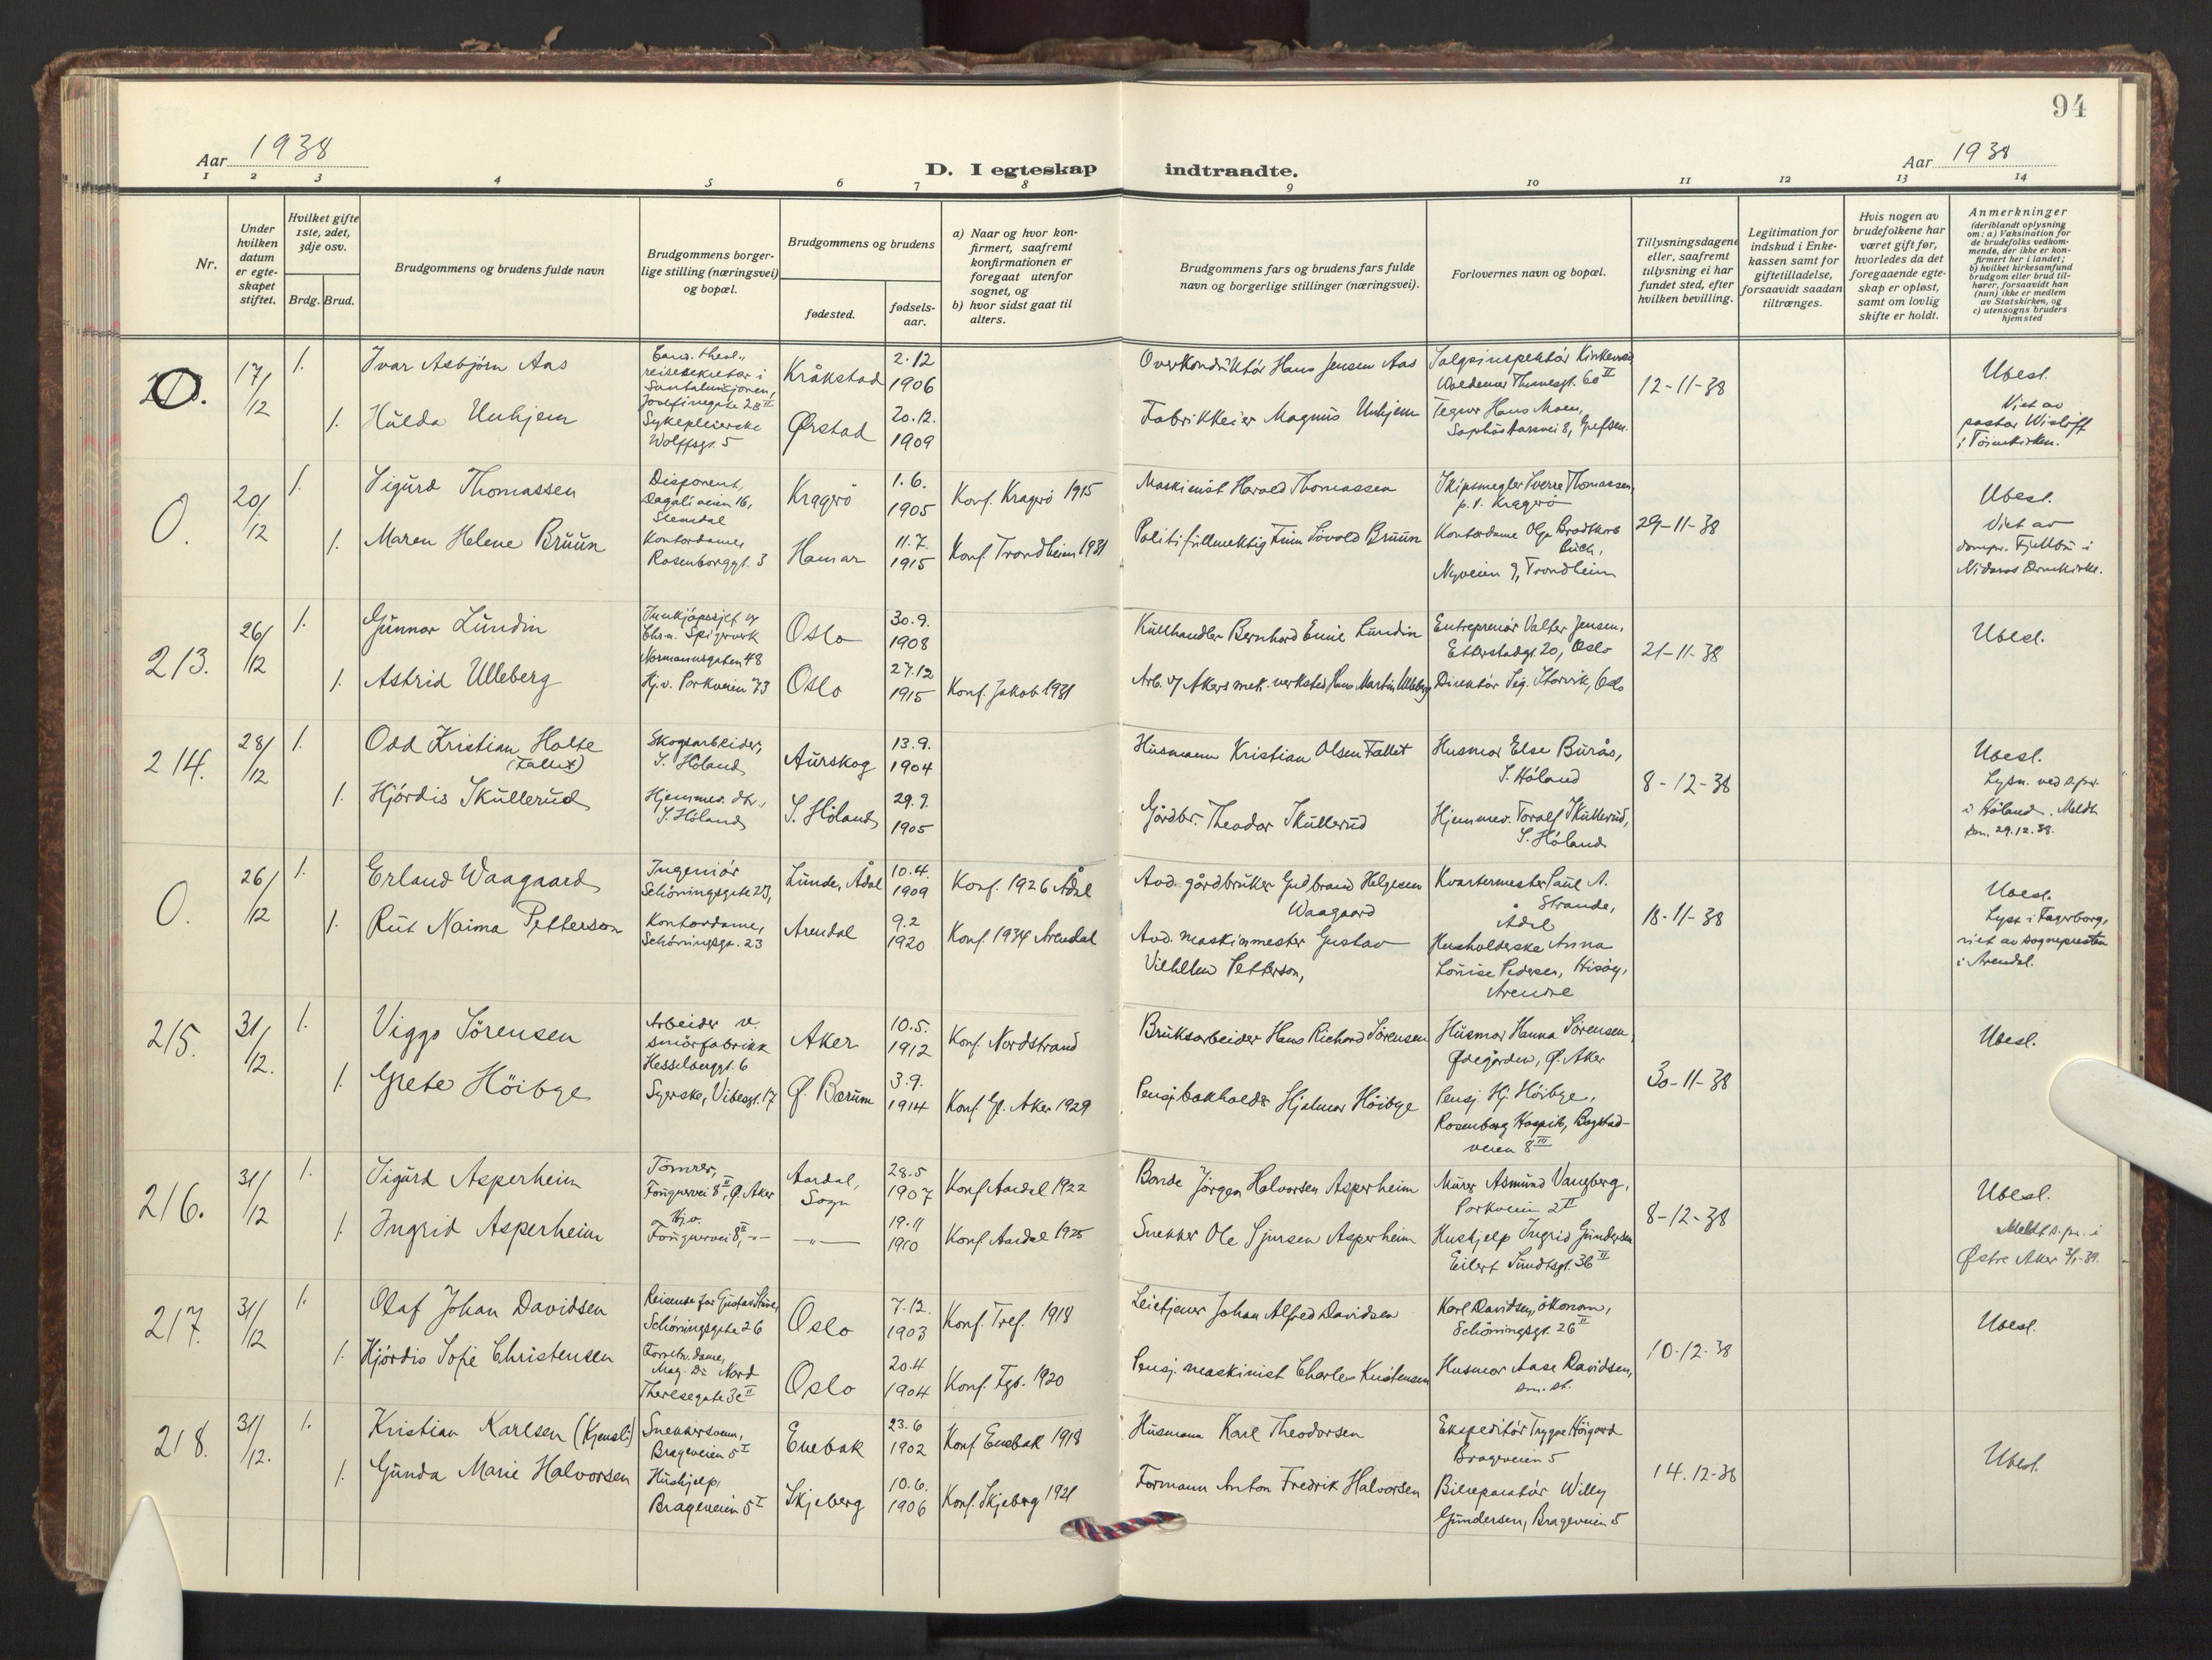 94
Aar 1938
D. I egteskap indtraadte.
Aar 1938
1 2 3 4 5 6 7 8 9 10 11 12 13 14
Nr.
Under hvilken datum er egteskapet stiftet.
Hvilket gifte 1ste, 2det, 3dje osv.
Brdg. Brud.
Brudgommens og brudens fulde navn
Brudgommens borgerlige stilling (næringsvei) og bopæl.
Brudgommens og brudens
fødested.
fødselsaar.
a) Naar og hvor konfirmert, saafremt konfirmationen er foregaat utenfor sognet, og
b) hvor sidst gaat til alters.
Brudgommens fars og brudens fars fulde navn og borgerlige stillinger (næringsvei).
Forlovernes navn og bopæl.
Tillysningsdagene eller, saafremt tillysning ei har fundet sted, efter hvilken bevilling.
Legitimation for indskud i Enkekassen samt for giftetilladelse, forsaavidt saadan tiltrænges.
Hvis nogen av brudefolkene har været gift før, hvorledes da det foregaaende egteskap er opløst, samt om lovlig skifte er holdt.
Anmerkninger
(deriblandt oplysning om: a) Vaksination for de brudefolks vedkommende, der ikke er konfirmert her i landet; b) hvilket kirkesamfund brudgom eller brud tilhører, forsaavidt han (hun) ikke er medlem av Statskirken, og c) utensogns bruders hjemsted
O.
17/12
1.
Ivar Asbjørn Aas
Cand. theol., reisesekretær i Santalmisjonen, Josefinegate 28 II
Kråkstad
2.12 1906
Overkonduktør Hans Jensen Aas
Salgsinspektør
Waldemar Thranesgt. 60 II
12-11-38
Ubesl.
Viet av pastor Wisløff i
1.
Hulda Unhjem
Sykepleierske
Wolffsgt. 5
Ørstad
20.12. 1909
Fabrikkeier Magnus Unhjem
Tegner Hans Moen,
Grefsen.
O.
20/12
1.
Sigurd Thomassen
Disponent, Dagaliveien 16, Slemdal
Kragerø
1.6. 1905
Konf. Kragerø 1915
Maskinist Harald Thomassen
Skipsmegler Sverre Thomassen,
p.t. Kragerø
29-11-38
Ubesl.
Viet av dompr. Fjellbu i Nidaros Domkirke.
1.
Maren Helene Bruun
Kontordame, Rosenborggt. 3
Hamar
11.7. 1915
Konf. Trondheim 1931
Politifullmektig Finn Sövold Bruun
Kontordame Olga Brodtkorb Buch,
Nyveien 9, Trondheim
213.
26/12
1.
Gunnar Lundin
Innkjøpssjef v/ Chr.a. Spigerverk
Normannsgaten 48
Oslo
30.9. 1908
Kullhandler Bernhard Emil Lundin
Entreprenør Valter Jensen,
Etterstadgt. 20, Oslo
21-11-38
Ubesl.
1.
Astrid Ulleberg
Hj.v. Parkveien 73
Oslo
27.12 1915
Konf. Jakob 1931
Arb. v/ Akers mek. verksted Hans Martin Ulleberg
Direktør Sig. Storvik, Oslo
214.
28/12
1.
Odd Kristian Holte
(Fallet)
Skogsarbeider, S. Høland
Aurskog
13.9. 1904
Husmann Kristian Olsen Fallet
Husmor Else Burås,
S. Høland
8-12-38
Ubesl.
Lysn. ved s.pr. i Høland. Meldt sm. 29.12.38.
1.
Hjördis Skullerud
Hjemmev. dtr., S. Høland
S. Høland
29.9. 1905
Gårdbr. Theodor Skullerud
Hjemmev. Toralf Skullerud,
S. Høland
O.
26/12
1.
Erland Waagaard
Ingeniør
Schöningsgate 23,
Lunde, Ådal
10.4. 1909
Konf. 1926 Ådal
Avd. gårdbruker Gudbrand Helgesen Waagaard
Kvartermester Paul A. Strande,
Ådal
18-11-38
Ubesl.
Lyst i Fagerborg, viet av sognepresten i Arendal.
1.
Rut Naima Petterson
Kontordame, Schöningsgt. 23
Arendal
9.2 1920
Konf. 1934 Arendal
Avd. maskinmester Gustav Vilhelm Petterson,
Husholderske Anna Louise Pedersen, Hisøy, Arendal
215.
31/12.
1.
Viggo Sörensen
Arbeider v. smörfabrikk
Hesselberggt. 6
Aker
10.5. 1912
Konf. Nordstrand
Bruksarbeider Hans Richard Sörensen
Husmor Hanna Sörensen,
Ødegården, Ø. Aker
30-11-38
Ubesl.
1.
Grete Höibye
Syerske, Vibesgt. 17
Ø. Bærum
3.9. 1914
Konf. Gl. Aker 1929
Pensj. bokholder Hjalmar Höibye
Pensj. Hj. Höibye,
Rosenborg Hospits, Bogstadveien 8 III
216.
31/12
1.
Sigurd Asperheim
Tömrer, 8 II, Ø. Aker
Aardal, Sogn
28.5 1907
Konf. Aardal 1922
Bonde Jörgen Halvorsen Asperheim
Murer Asmund Vangberg,
Parkveien 2 II
8-12-38
Ubesl.
Meldt s.pr. i Østre Aker 3/1-39.
1.
Ingrid Asperheim
Hj.v.
8 II, -"-
-"-
19.11 1910
Konf. Aardal 1925
Snekker Ole Sjursen Asperheim
Hushjelp Ingrid Gundersen
Eilert Sundtsgt. 36 II
217.
31/12
1.
Olaf Johan Davidsen
Reisende for
Schöningsgate 26
Oslo
7.12. 1903
Konf. Tref. 1918
Leietjener Johan Alfred Davidsen
Karl Davidsen, økonom,
Schöningsgt. 26 II
10-12-38
Ubesl.
1.
Hjördis Sofie Christensen
Forretn.dame, Mag. Du Nord
Theresegate 3c II
Oslo
20.4 1904
Konf. Fgb. 1920
Pensj. maskinist Charles Kristensen
Husmor Aase Davidsen,
sm. st.
218.
31/12.
1.
Kristian Karlsen (Kjensli)
Snekkersvenn, Brageveien 5 I
Enebak
23.6 1902
Konf. Enebak 1918
Husmann Karl Theodorsen
Ekspeditör Trygve Höigård
Brageveien 5
14.12-38
Ubesl.
1.
Gunda Marie Halvorsen
Hushjelp, Brageveien 5 I
Skjeberg
10.6. 1906
Konf. Skjeberg 1921
Formann Anton Fredrik Halvorsen
Bilreparatör Willy Gundersen, Brageveien 5